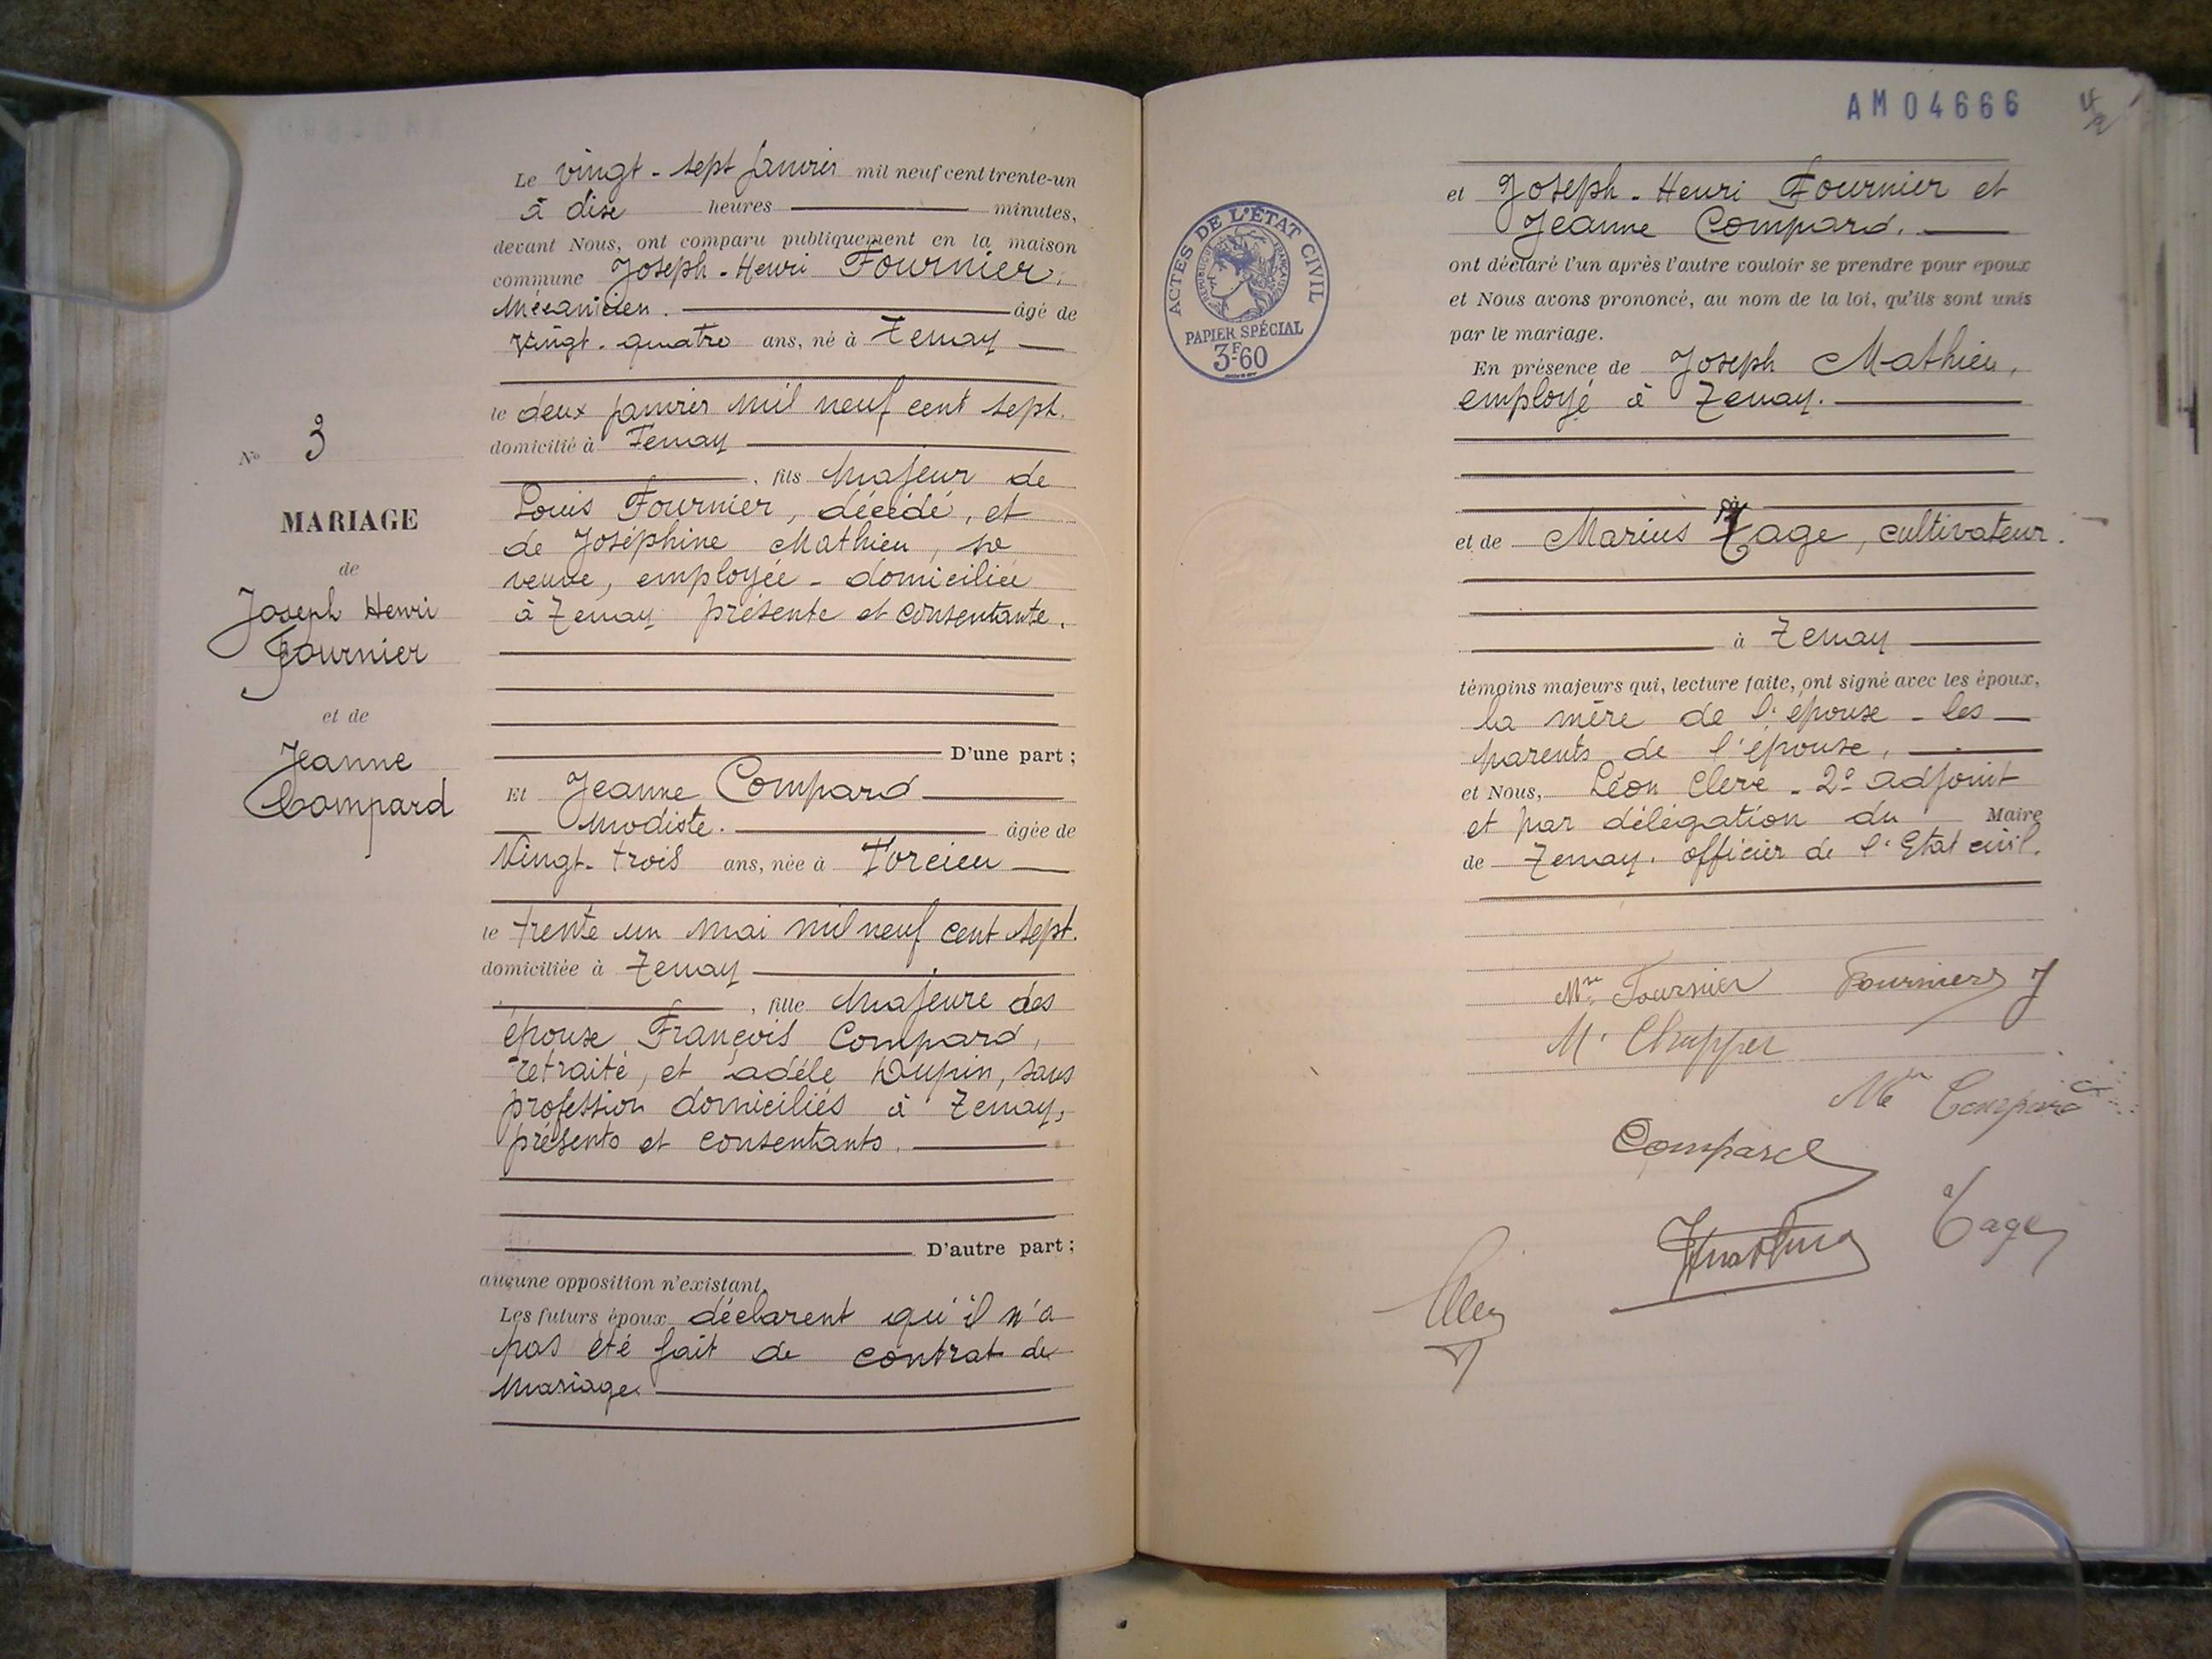 Le vingt-sept janvier mil neuf cent trente-un
à dise heures minutes,
devant Nous, ont comparu publiquement en la maison
commune Joseph-Henri Fournier,
mécanicien. âgé de
vingt-quatre ans, né à Tenay
le deux janvier mil neuf cent sept.
domicilié à Tenay
, fils majeur de
Louis Fournier, décédé, et
de Joséphine Mathieu, sa
veuve, employée - domiciliée
à Tenay présente et consentante.
D'une part ;
Et Jeanne Compard
modiste. âgée de
Vingt-trois ans, née à Torcieu
le trente un mai mil neuf cent sept.
domiciliée à Tenay
, fille majeure des
épouse François Compard,
retraité, et adéle Dupin, sans
profession domiciliés à Tenay,
présents et consentants.
D'autre part ;
aucune opposition n'existant.
Les futurs époux déclarent qu'il n'a
pas été fait de contrat de
mariage.
N° 3
MARIAGE
de
Joseph Henri
Fournier
et de
Jeanne
Compard
AM04666
ACTES DE L'ÉTAT CIVIL
RÉPUBLIQUE FRANÇAISE
PAPIER SPÉCIAL
3F60
et Joseph-Henri Fournier et
Jeanne Compard.
ont déclaré l'un après l'autre vouloir se prendre pour époux
et Nous avons prononcé, au nom de la loi, qu'ils sont unis
par le mariage.
En présence de Joseph Mathieu,
employé à Tenay.
et de Marius Tage, cultivateur.
à Tenay
témoins majeurs qui, lecture faite, ont signé avec les époux,
la mère de l'épouse - les
parents de l'épouse,
et Nous, Léon Clerc - 2e adjoint
et par délégation du Maire
de Tenay. officier de l'Etat civil.
Mme Fournier Fournier J
Mle Compard
Compard
Tage